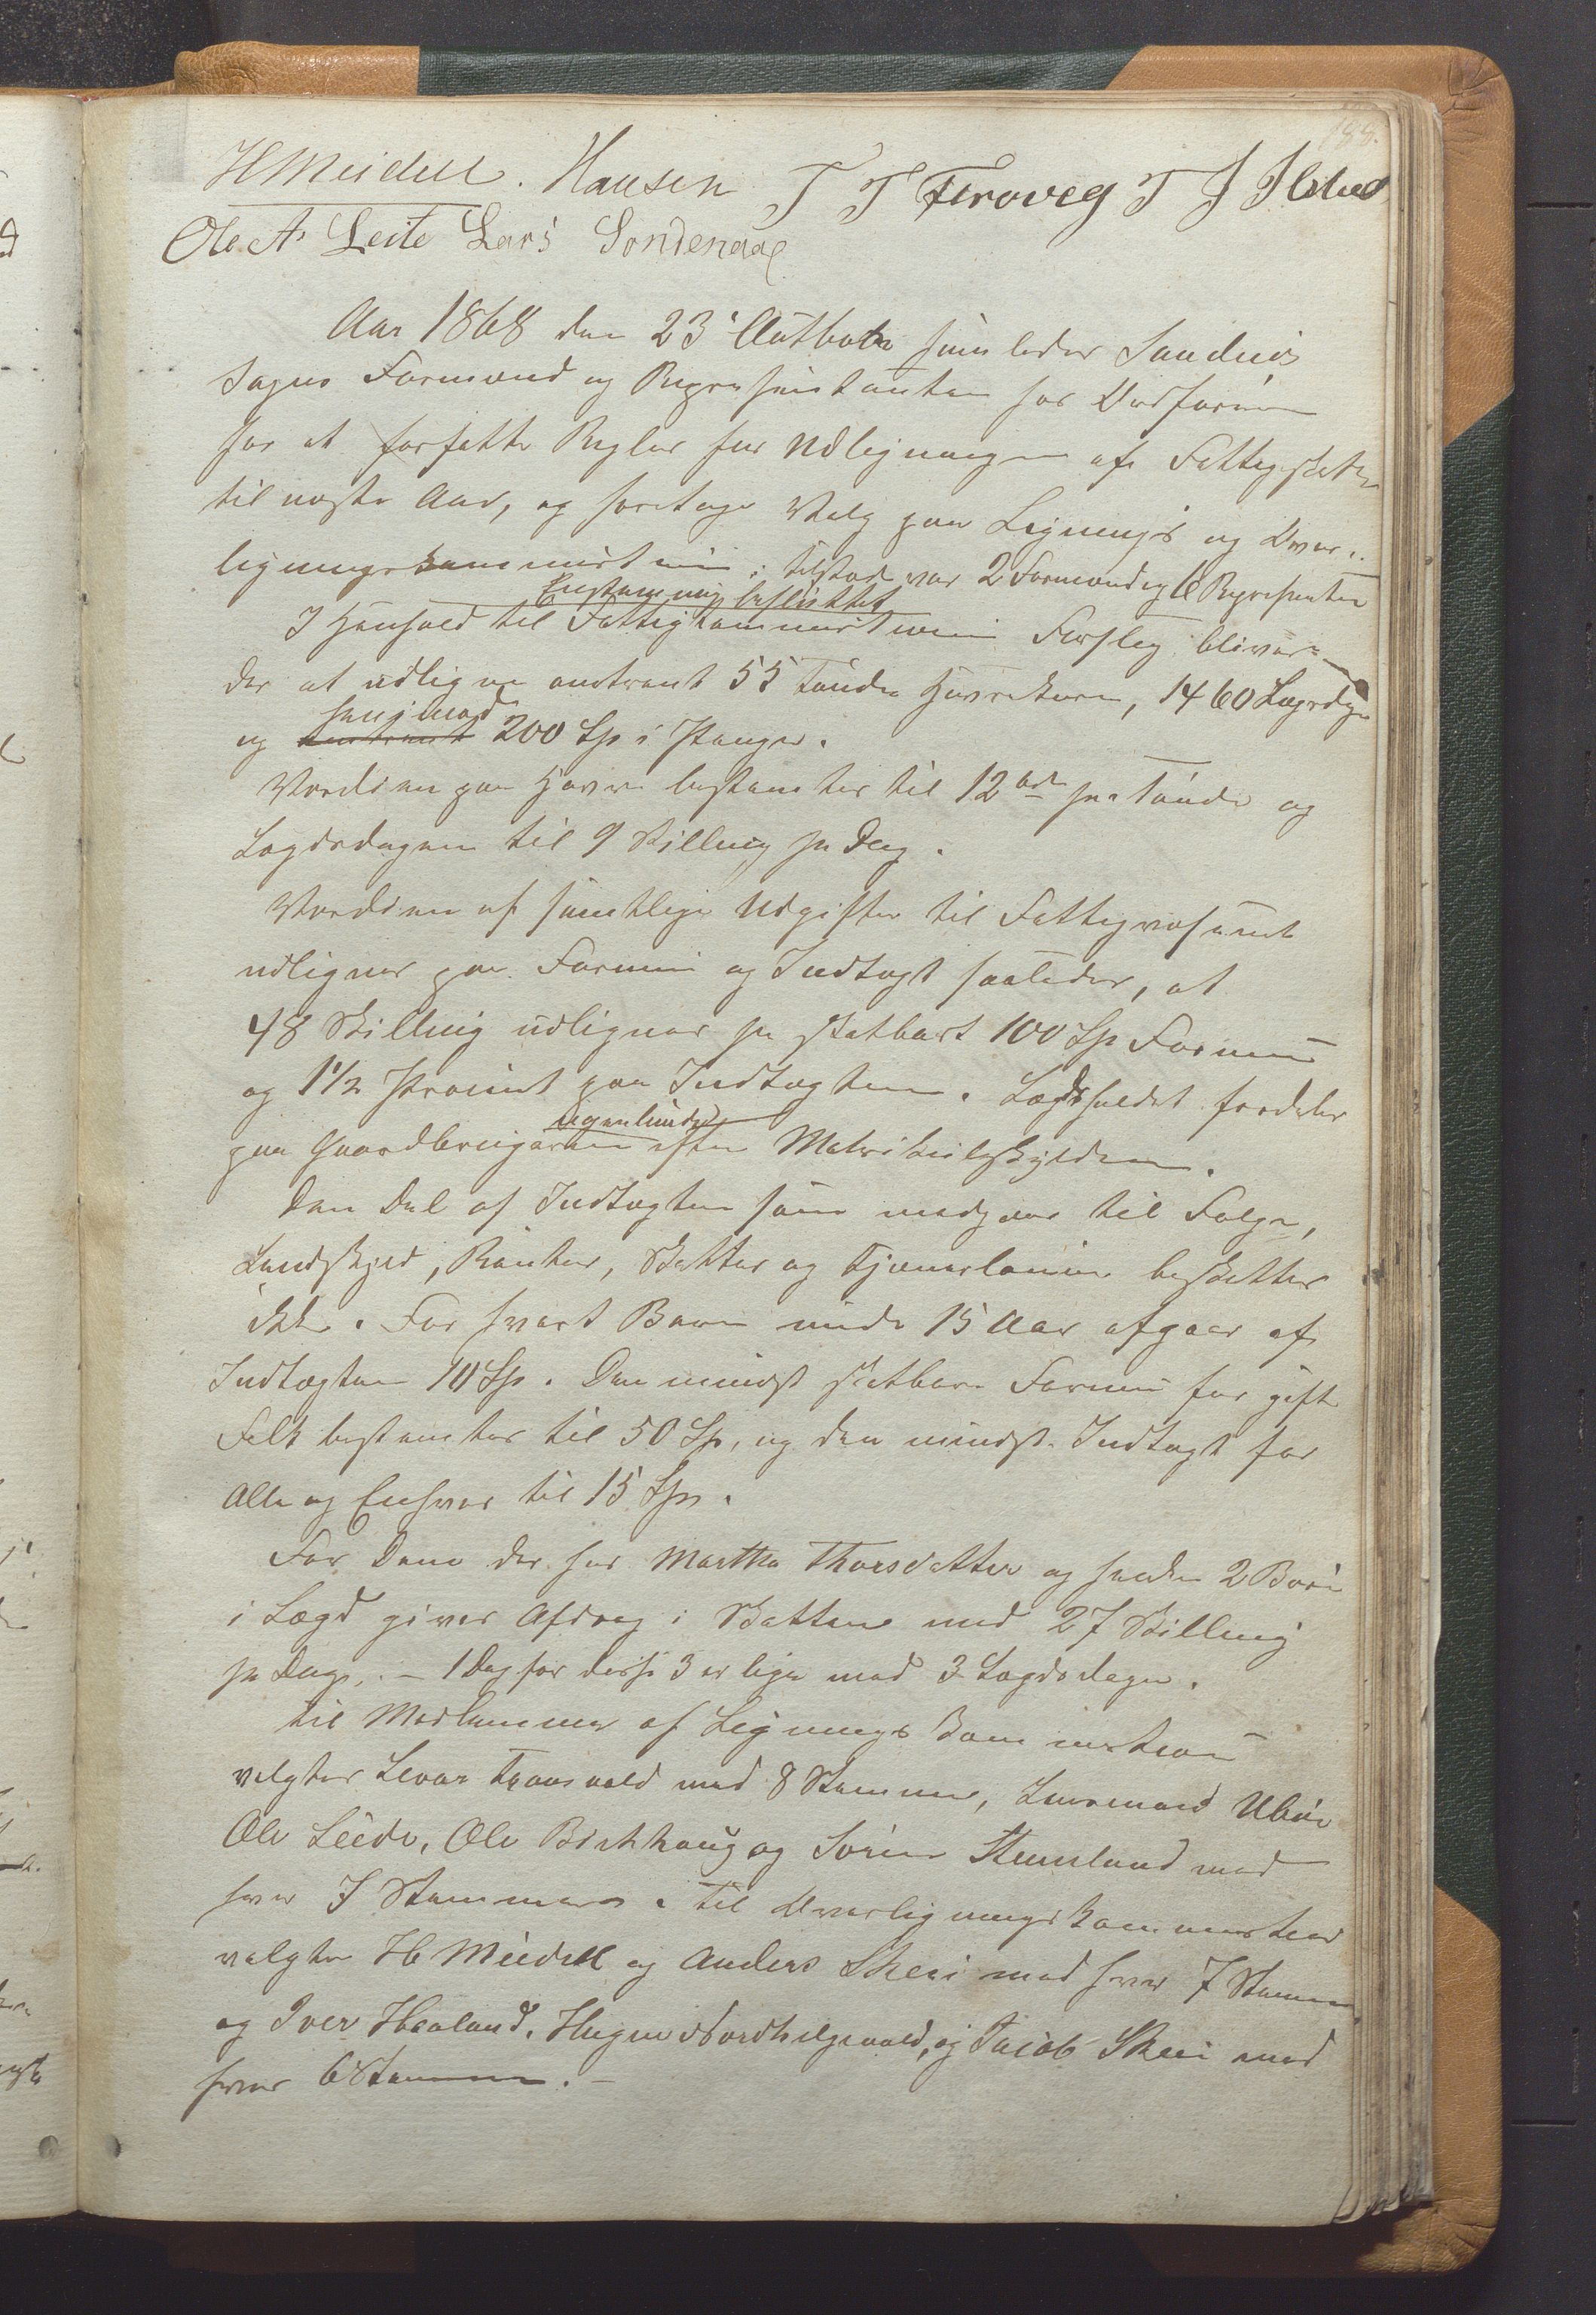 188.
H Meidell. Hansen T T Feroveg T J Ilstad
Ole A. Leite Lars Sondenaa
Aar 1868 den 23 Octbober samledes
Sogns Formænd og Repræsentanter
for at forfatte Regler for Udligningen af Fattigskatten
til næste Aar, og foretage Valg paa Lignings og Over-
ligningskommissionen; tilstede var 2 Formænd og 6 Repræsentanter
Enstemmig besluttet
I Henhold til Fattigkommissionens Forslag bliver
der at udligne omtrent 55 Tønder Havrekorn, 1460 Lægdsdage
henimod
og omtrent 200 Sp i Penge.
Værdien paa Havre bestemtes til 12 ort pr Tønde og
Lægdsdagene til 9 Skilling pr Dag.
Værdien af samtlige Udgifter til Fattigvæsenet
udlignes paa Formue og Indtægt saaledes, at
48 Skilling udlignes pr skatbart 100 Sp Formue
og 1 1/2 Procent paa Indtægten. Lægdsholdet fordeles
ligeledes
paa Gaardbrugerne efter Matrikulskylden.
Den Del af Indtægten som medgaar til Følge,
Landskyld, Renter, Skatter og Tjenerlønning beskattes
ikke. For hvert Barn under 15 Aar afgaar af
Indtægten 10 Sp. Den mindst skatbare Formue for gifte
Folk bestemtes til 50 Sp, og den mindste Indtægt for
Alle og Enhver til 15 Sp.
For Dem der har Martha Thorsdatter og hendes 2 Børn
i Lægd gives Afdrag i Skatten med 27 Skilling
pr Dag. – 1 Dag for disse 3 er lige med 3 Lægdsdage.
Til Medlemmer af Ligningskommission
valgtes med 8 Stemmer,
Ole Leede, Ole Birkhaug og Sørine Stemland med
hver 7 Stemmer. Til Overligningskommission
valgtes H Meidell og Anders Skeie med hver 7 Stemmer
og Iver Haaland, og Jacob Skeie med
hver 6 Stemmer. –